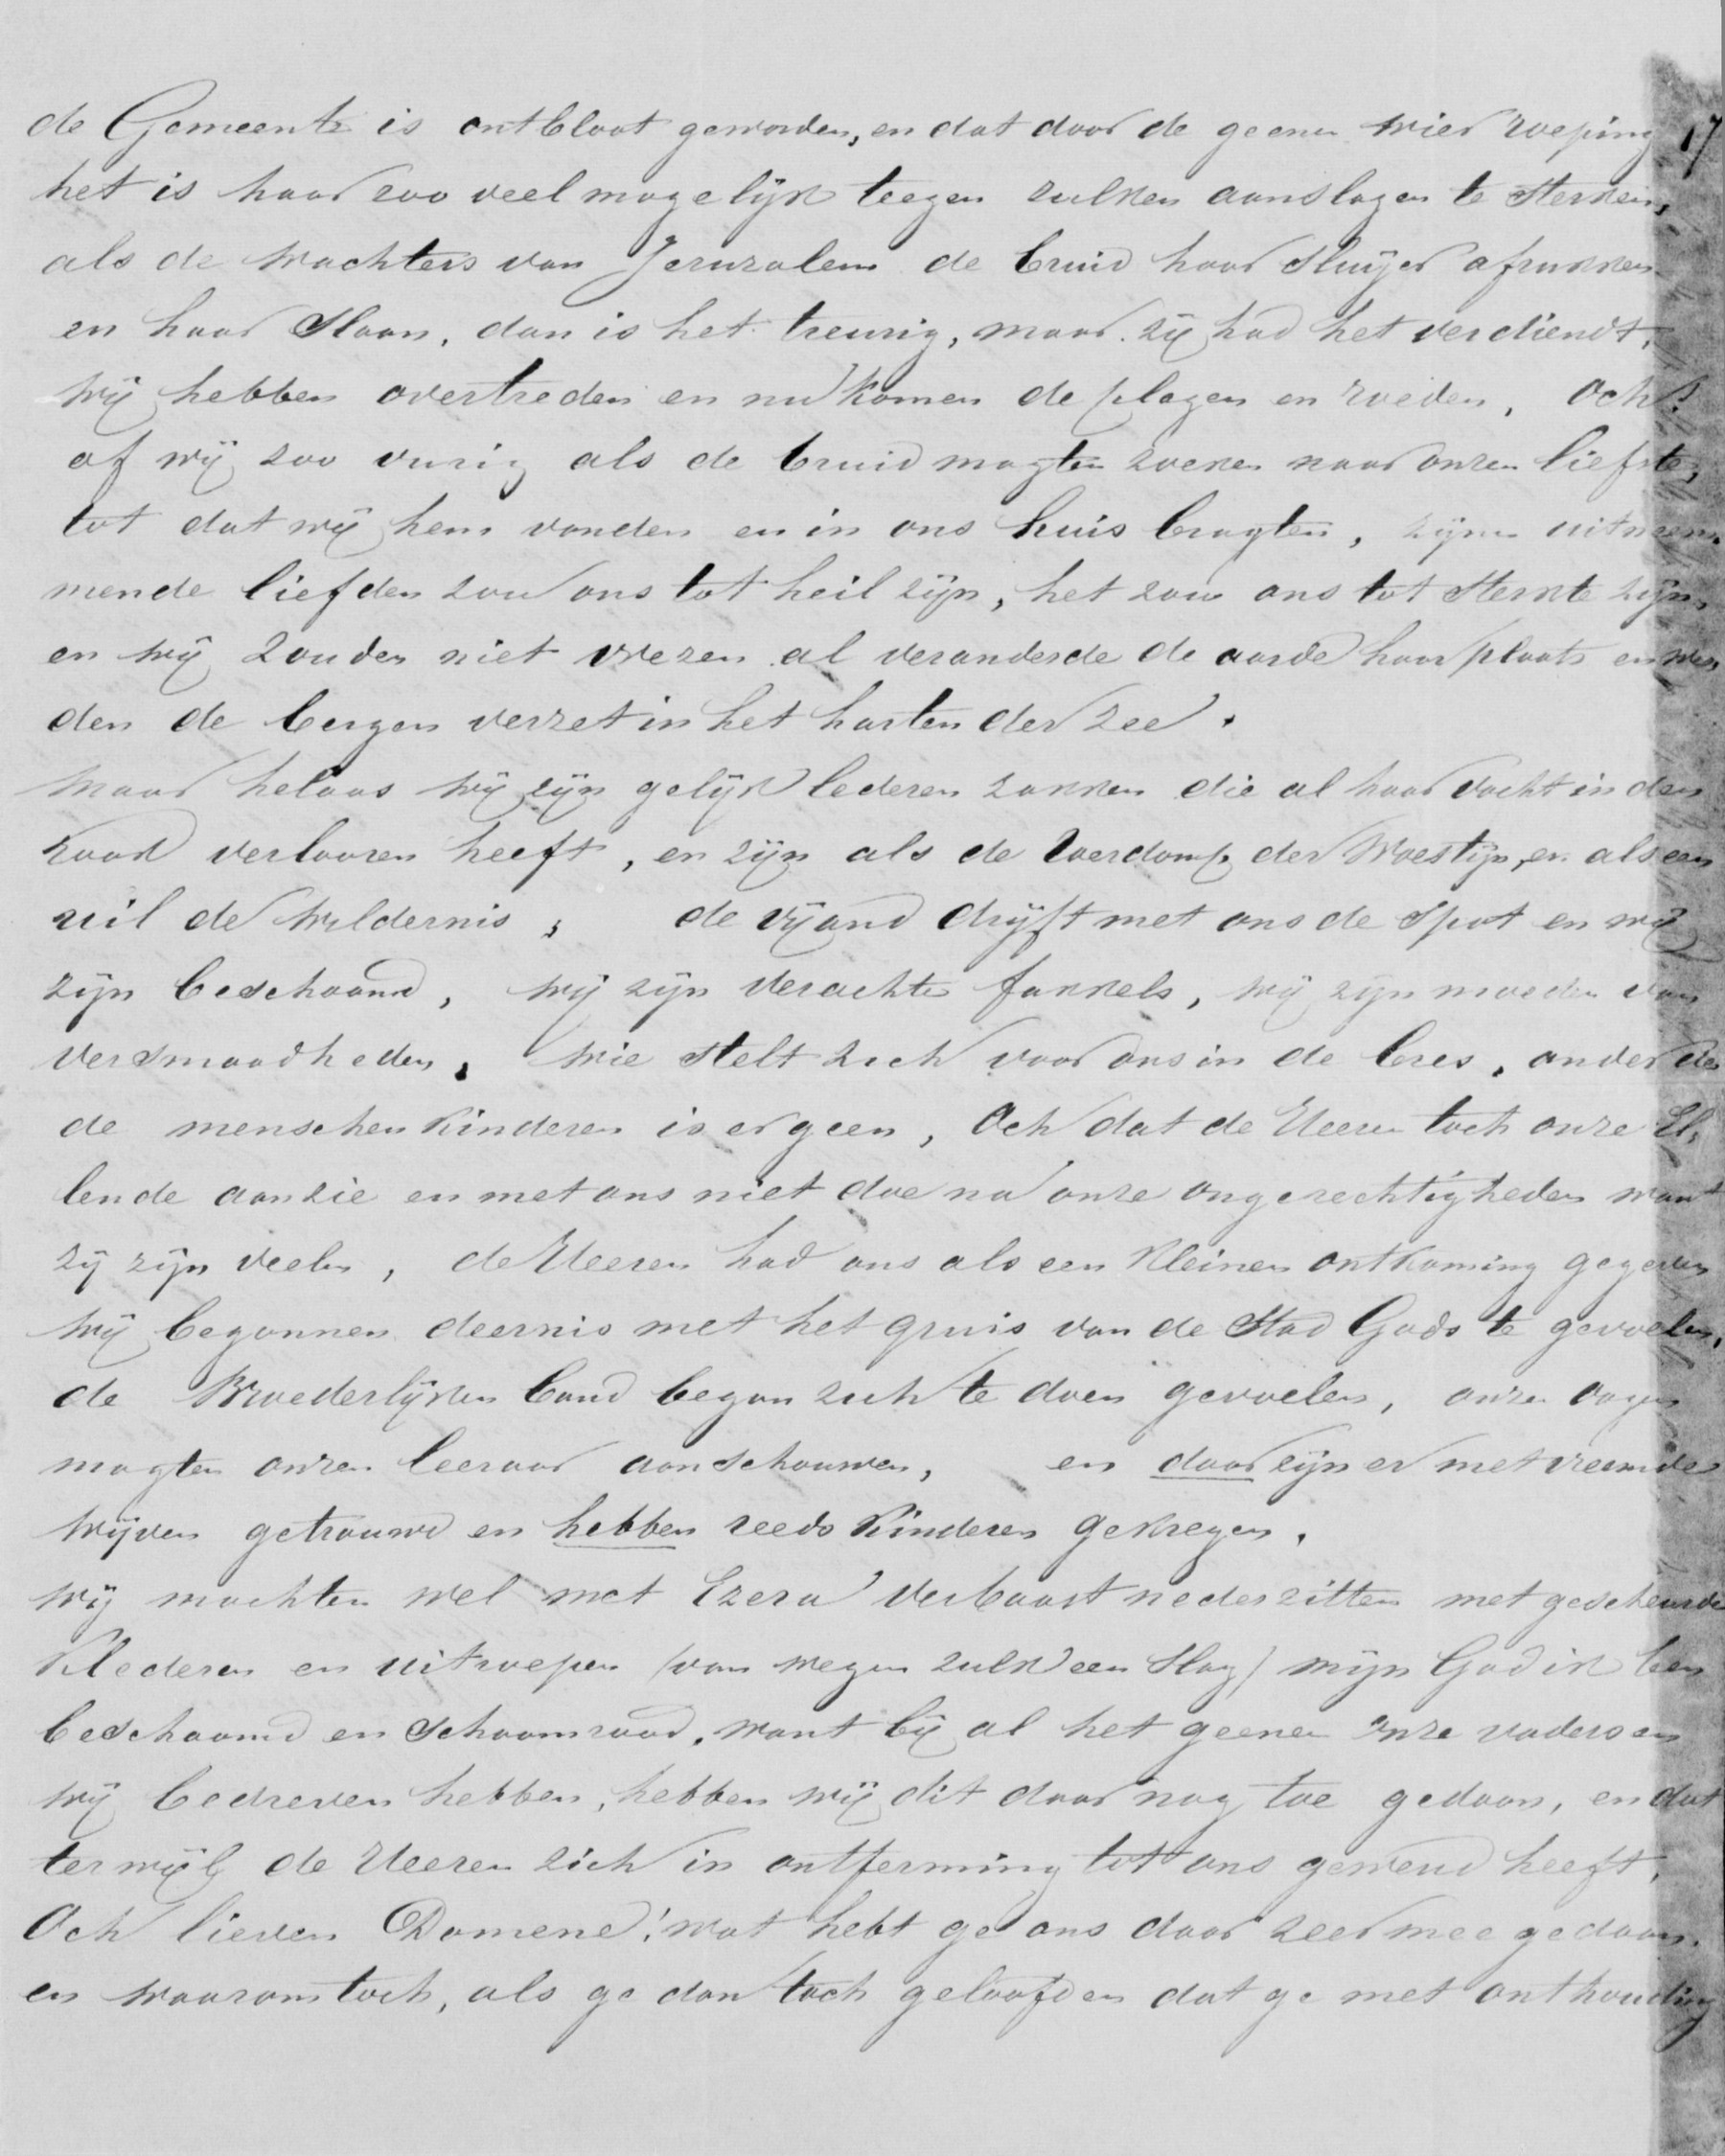 de Gemeente is ontbloot geworden, en dat door de geenen wier roeping 17
het is haar zoo veel mogelijk teegen zulken aanslagen te sterken,
als de wachters van Jeruzalem de bruid haar sluijer afrukken
en haar slaan, dan is het treurig, maar zij had het verdiendt,
wij hebben overtreden en nu komen de plagen en roeden, och!
of wij zoo vurig als de bruid mogten zoeken naar onzen liefste,
tot dat wij hem vonden en in ons huis bragten, zijnen uitnee
mende liefden zou ons tot heil zijn, het zou ons tot sterkte zijn,
en wij zouden niet vrezen al veranderde de aarde haar plaats en wer
den de bergen verzet in het harten der zee.
Maar helaas wij zijn gelijk lederen zakken die al haar vocht in den
rook verlooren heeft, en zijn als de roerdomp der Woestijn, en als een
uil de Wildernis, de vijand drijft met ons de spot en wij
zijn beschaamd, wij zijn verachte fakkels, wij zijn moeden van
versmaadheden, wie stelt zich voor ons in de bres, onder de
de menschen kinderen is er geen, Och dat de Heere toch onze El,
lende aanzie en met ons niet doe na onze ongerechtigheden want
zij zijn veelen, de Heeren had ons als een kleinen ontkoming gegeven
wij begonnen deernis met het gruis van de Stad Gods te gevoelen,
de Broederlijken band begon zich te doen gevoelen, onzen oogen
mogten onzen leeraar aanschouwen, en daar zijn er met vreemde
wijven getrouwd en hebben reeds kinderen gekregen.
wij mochten wel met Ezera verbaast nederzitten met gescheurde
klederen en uitroepen (van wegen zulk een slag) mijn God ik ben
beschaamd en schaamrood, want bij al het geenen onze vaders en
wij bedreven hebben, hebben wij dit daar nog toe gedaan, en dat
terwijl de Heeren zich in ontferming tot ons gewend heeft,
Och lieven Domene! wat hebt ge ons daar zeer mee gedaan,
en waarom toch, als ge dan toch geloofden dat ge met onthouding